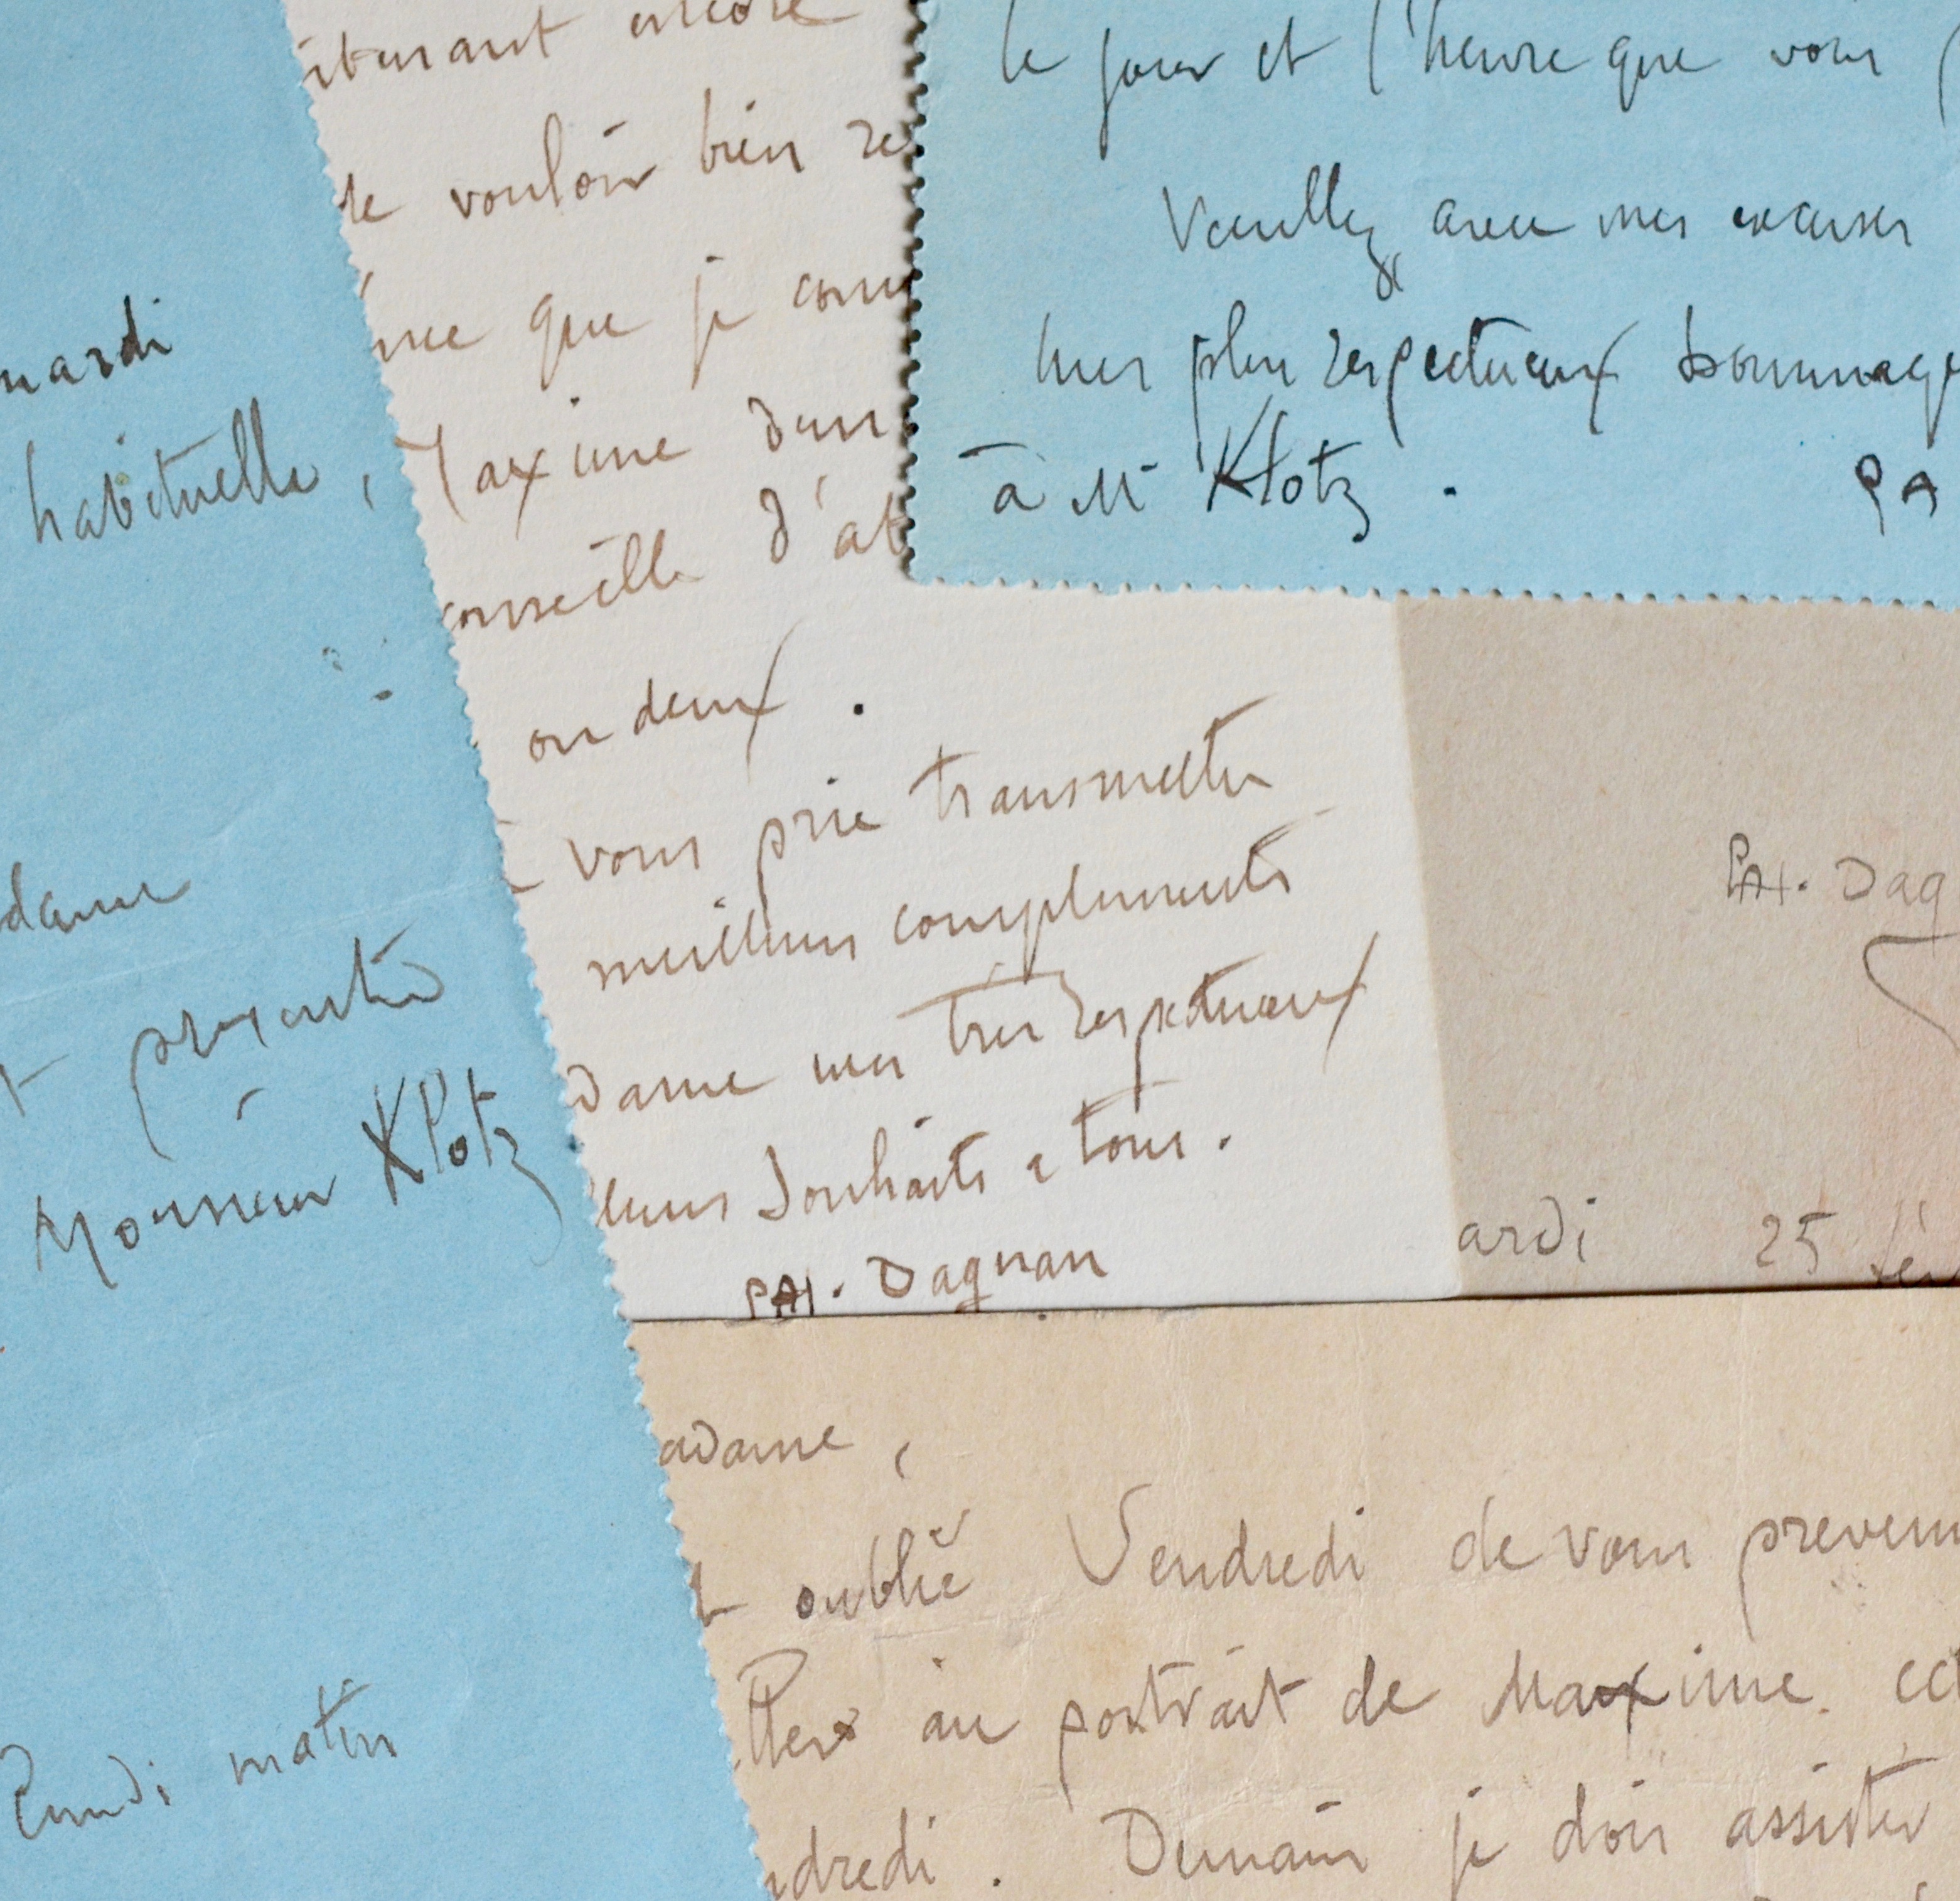 mardi
habituelle,
dame
présenter
à
Monsieur Klotz
Lundi matin
encore
de vouloir bien re
que je conn
Maxime dans
conseille d'at
ou deux.
vous prie transmettre
meilleurs compliments
dame mes très respectueux
lleurs souhaits à tous.
PAJ. Dagnan
le jour et l'heure que vous
Veuillez avec mes excuses
mes plus respectueux hommage
à Mr Klotz.
PA
PAJ. Dag
ardi 25 fév
adame,
oublié Vendredi de vous preveni
au portrait de Maxime. cet
ndredi. Demain je dois assister